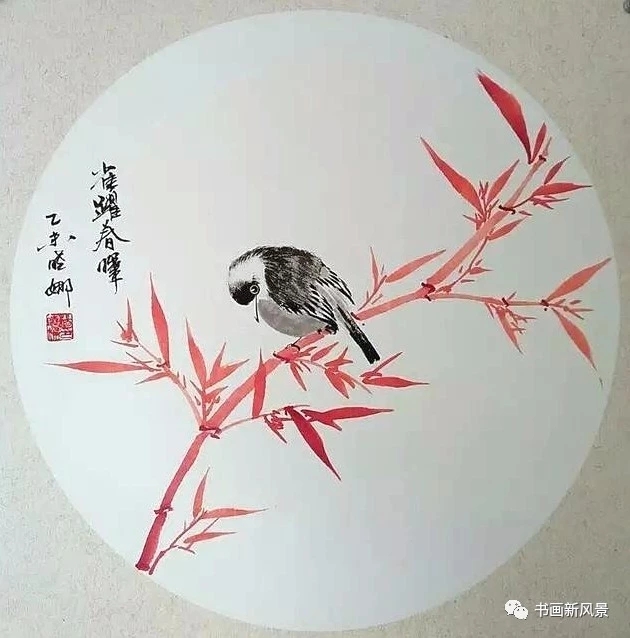 雀躍春暉
乙未晓娜
书画新风景